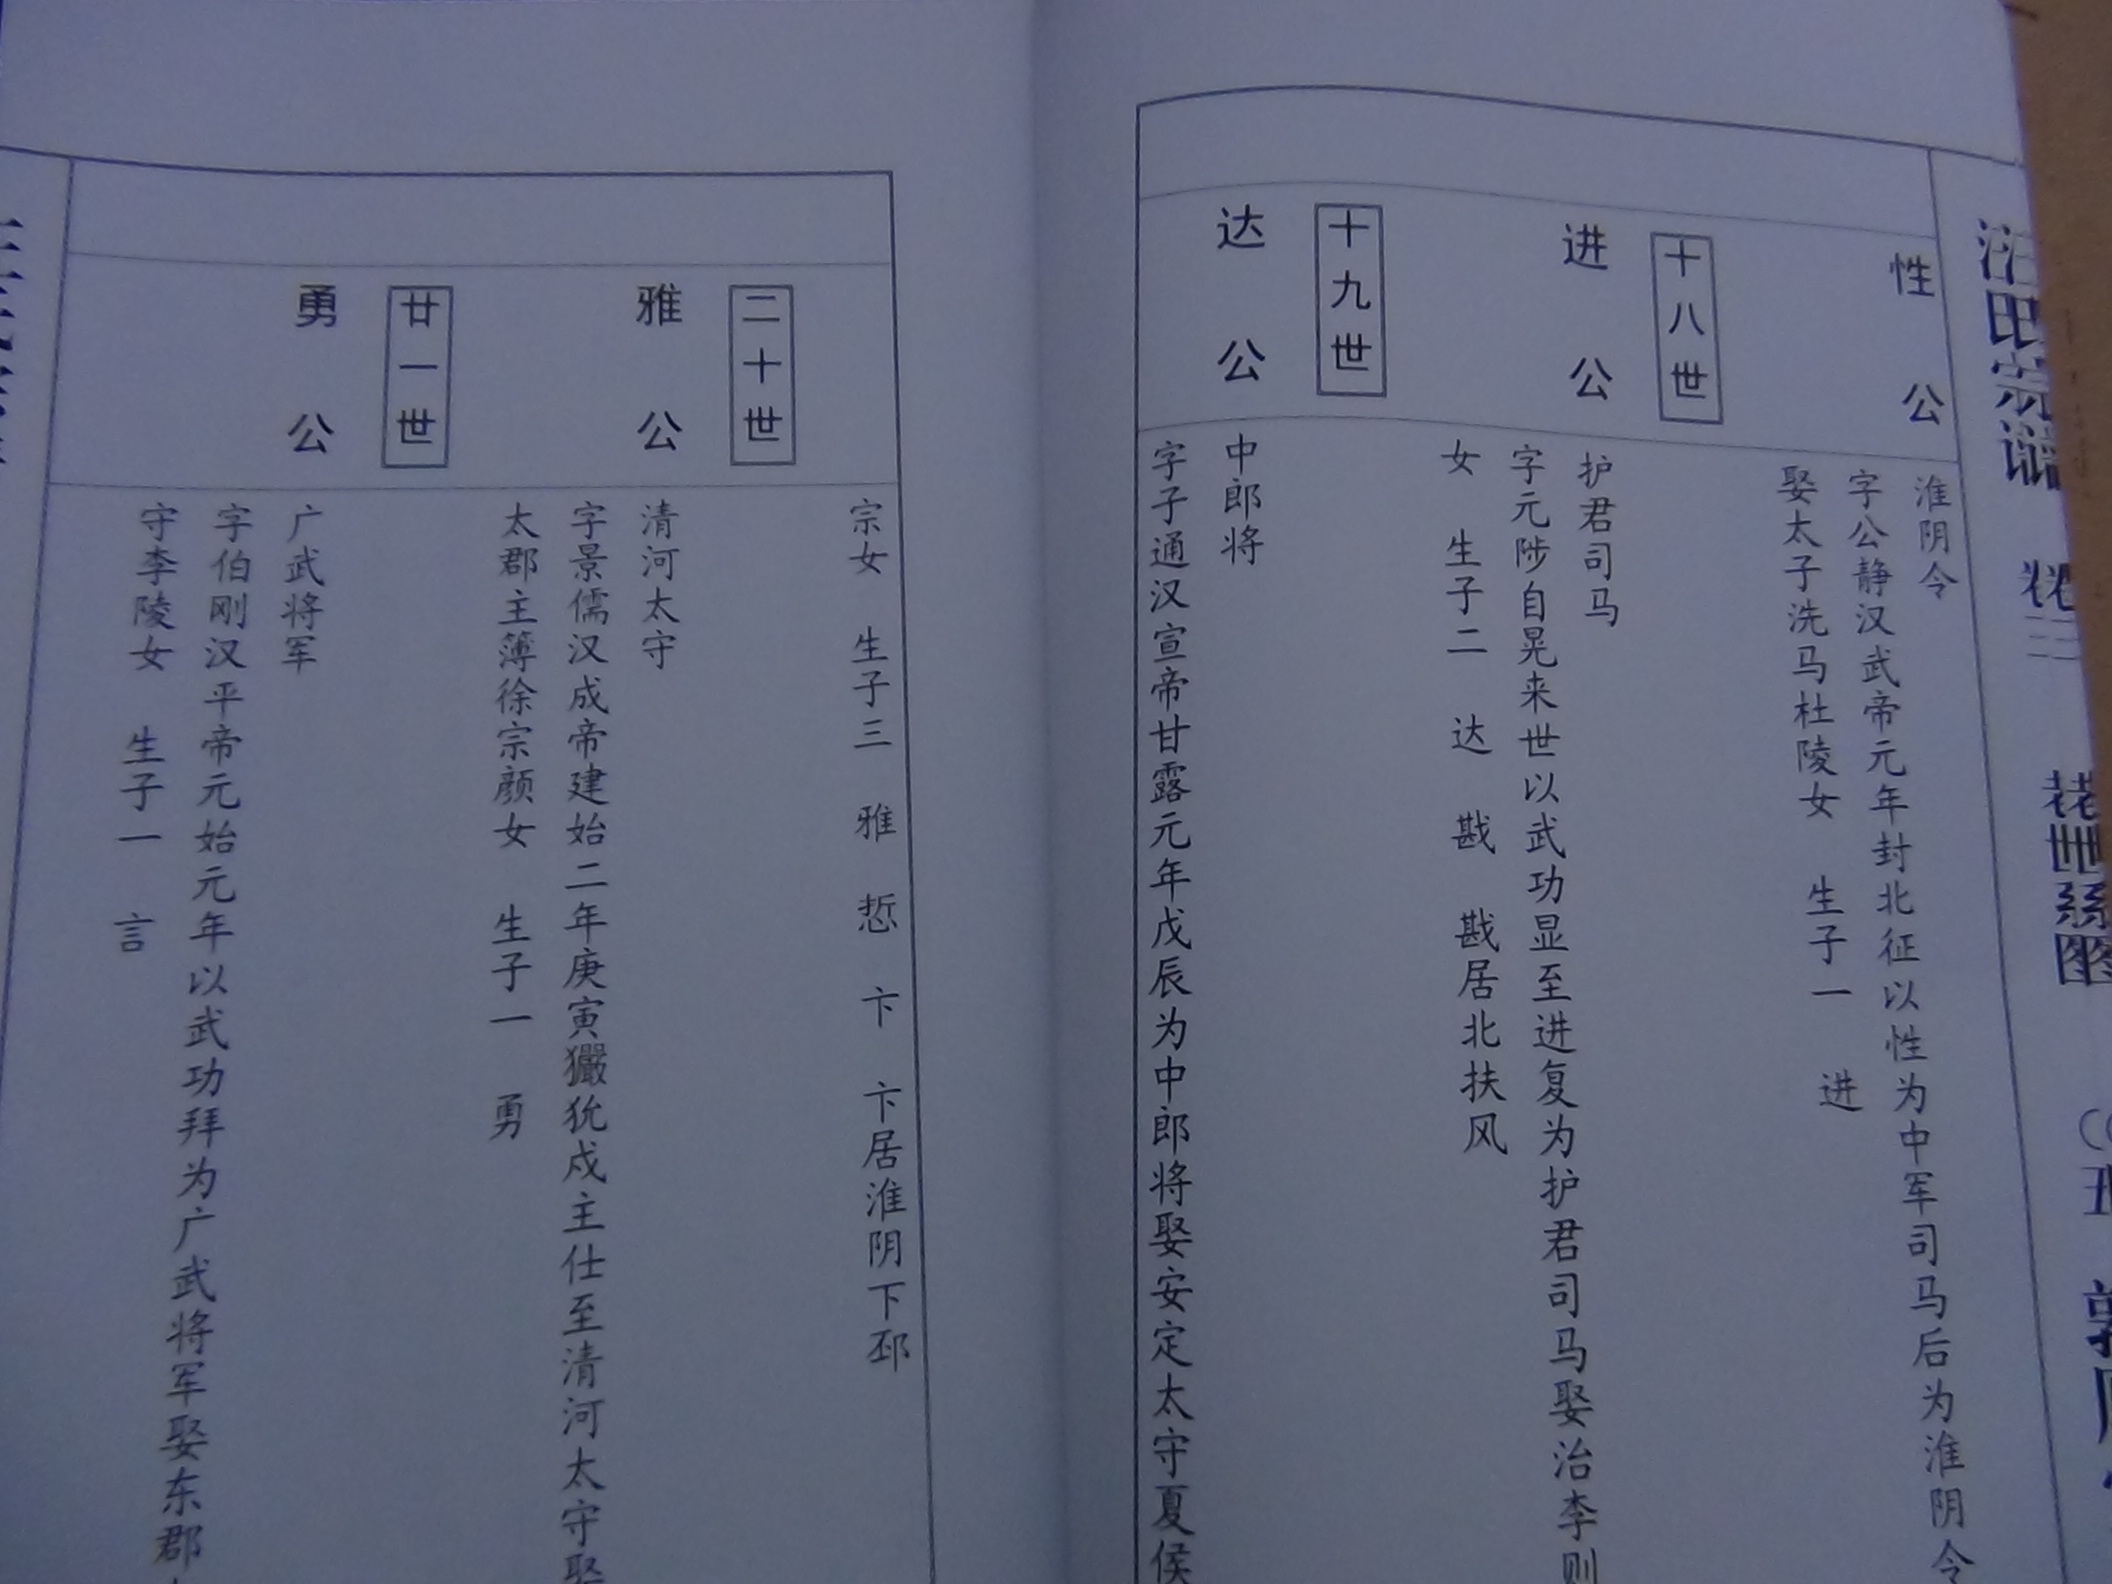 性公
淮阴令
字公静汉武帝元年封北征以性为中军司马后为淮阴令
娶太子洗马杜陵女 生子一 进
十八世
进公
护君司马
字元陟自晃来世以武功显至进复为护君司马娶治李则
女 生子二 达 戡 戡居北扶风
十九世
达公
中郎将
字子通汉宣帝甘露元年戊辰为中郎将娶安定太守夏侯
宗女 生子三 雅 悊 卞 卞居淮阴下邳
二十世
雅公
清河太守
字景儒汉成帝建始二年庚寅玁狁戍主仕至清河太守娶
太郡主簿徐宗颜女 生子一 勇
廿一世
勇公
广武将军
字伯刚汉平帝元始元年以武功拜为广武将军娶东郡
守李陵女 生子一 言